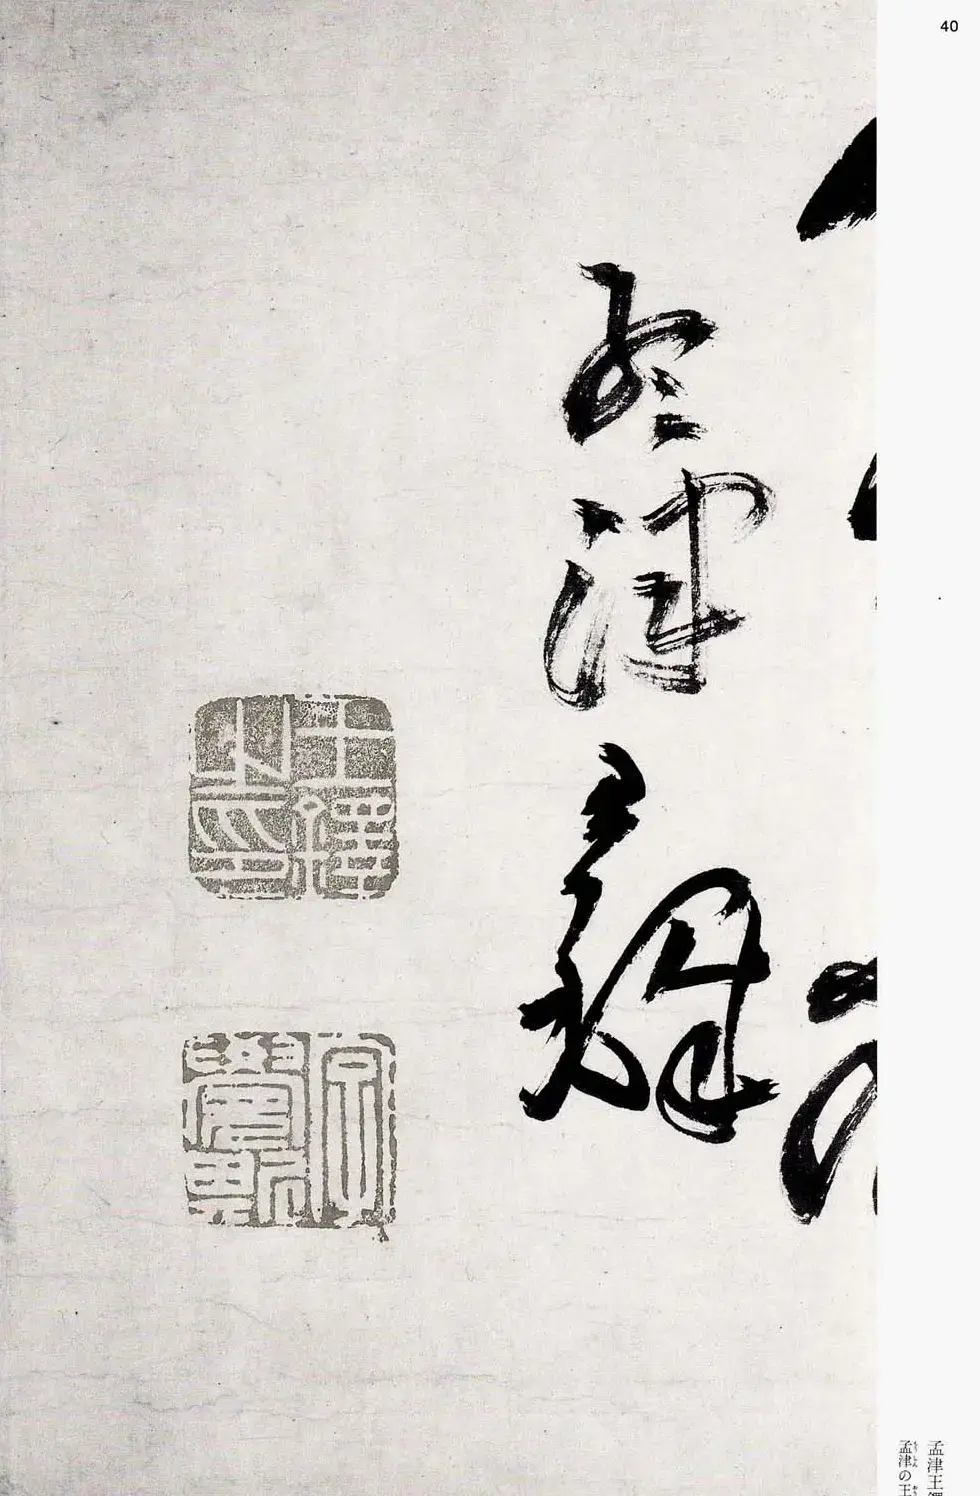 40
孟津王鐸
王鐸之印
孟津王
孟津の王